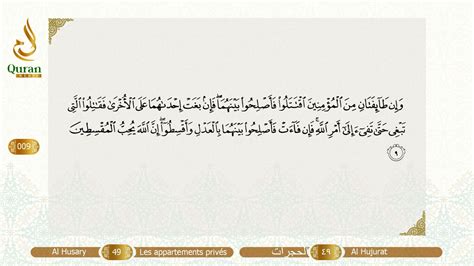 Quran
وَإِن طَآئِفَتَانِ مِنَ ٱلْمُؤْمِنِينَ ٱقْتَتَلُوا۟ فَأَصْلِحُوا۟ بَيْنَهُمَا ۖ فَإِنۢ بَغَتْ إِحْدَىٰهُمَا عَلَى ٱلْأُخْرَىٰ فَقَٰتِلُوا۟ ٱلَّتِى
تَبْغِى حَتَّىٰ تَفِىٓءَ إِلَىٰٓ أَمْرِ ٱللَّهِ ۚ فَإِن فَآءَتْ فَأَصْلِحُوا۟ بَيْنَهُمَا بِٱلْعَدْلِ وَأَقْسِطُوٓا۟ ۖ إِنَّ ٱللَّهَ يُحِبُّ ٱلْمُقْسِطِينَ
٩
009
Al Husary 49 Les appartements privés الحجرات ٤٩ Al Hujurat